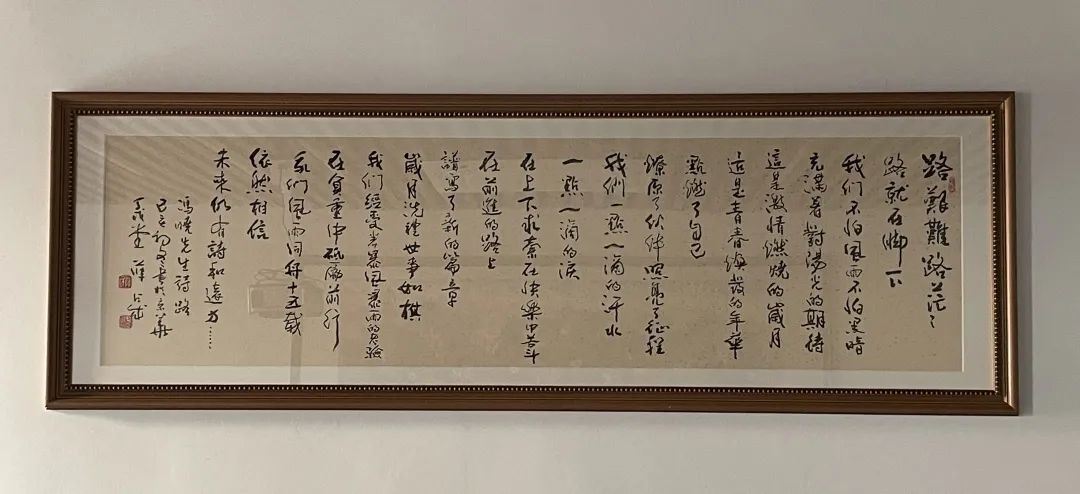 路艱難路茫々
路就在脚下
我们不怕風雨不怕黑暗
充滿着對陽光的期待
這是激情燃燒的歲月
這是青春煥發的年華
點燃了自己
燎原了伙伴照亮了征程
我們一點一滴的汗水
一點一滴的淚
在上下求索在快樂中苦斗
在前進的路上
譜寫了新的篇章
歲月洗禮世事如棋
我们經受着暴風暴雨的考驗
在負重中砥礪前行
我们風雨同舟十五載
依然相信
未来仍有詩和遠方……
馮曉先生詩路
於京華